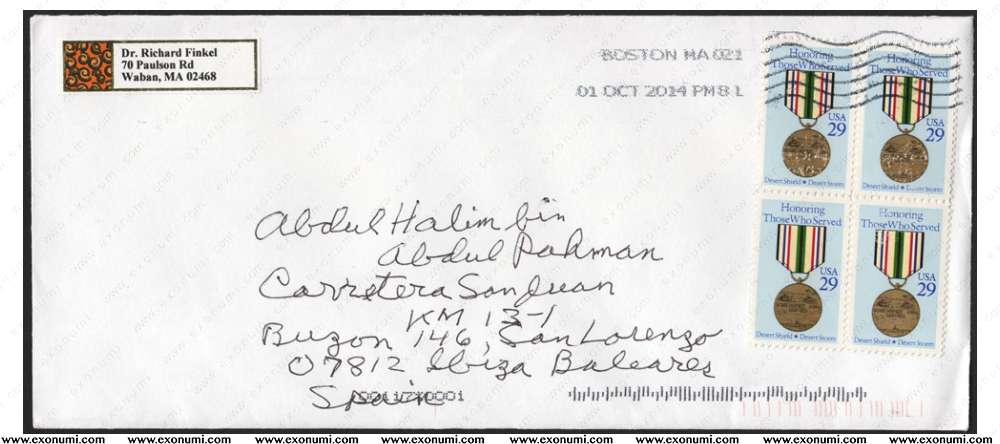 Dr. Richard Finkel
70 Paulson Rd
Waban, MA 02468
BOSTON MA 021
01 OCT 2014 PM 8 L
Honoring
Those Who Served
USA
29
Desert Shield ★ Desert Storm
Honoring
Those Who Served
USA
29
Desert Shield ★ Desert Storm
Honoring
Those Who Served
USA
29
Desert Shield ★ Desert Storm
Honoring
Those Who Served
USA
29
Desert Shield ★ Desert Storm
Abdul Halim bin
Abdul Rahman
Carretera San Juan
KM 13-1
Buzon 146, San Lorenzo
07812 Ibiza Baleares
Spain
www.exonumi.com www.exonumi.com www.exonumi.com www.exonumi.com www.exonumi.com www.exonumi.com www.exonumi.com www.exonumi.com